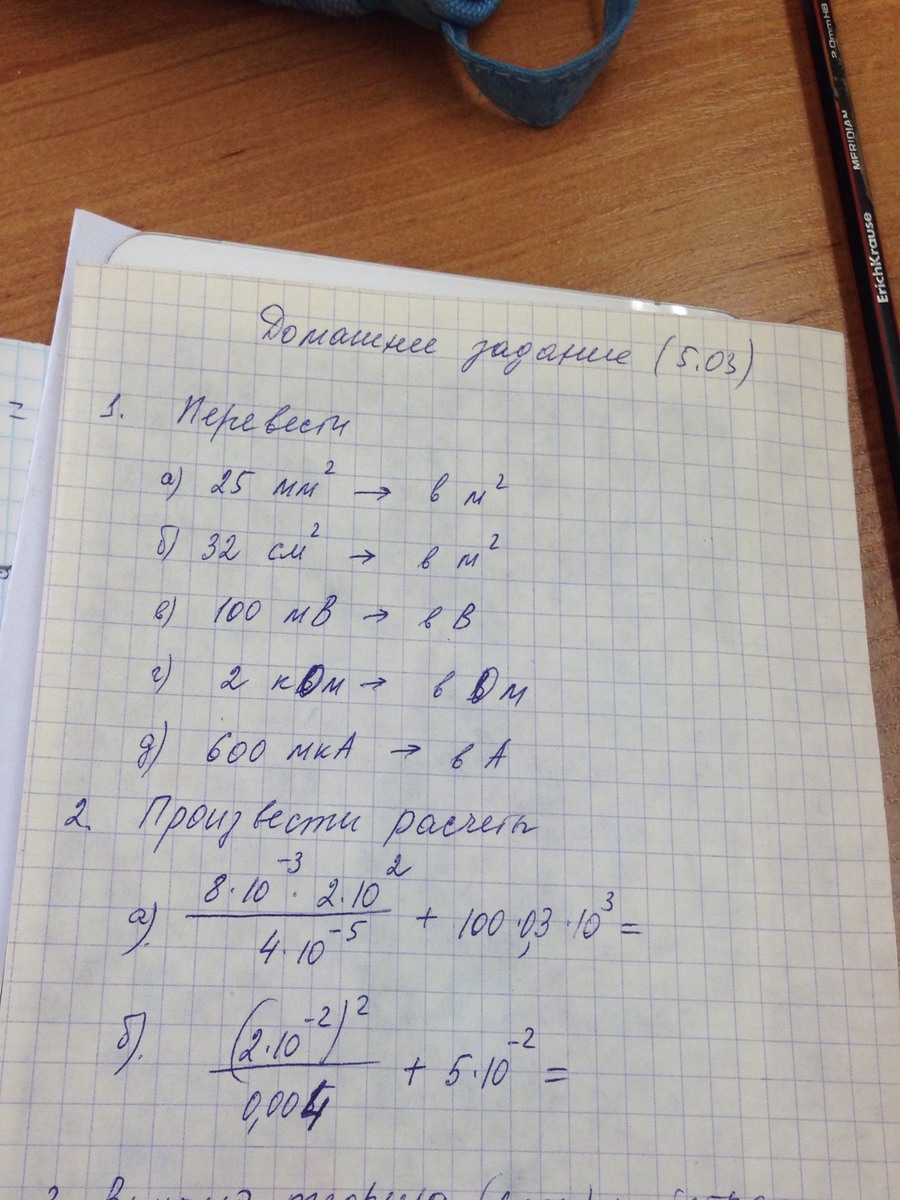 2.0mm HB
MERIDIAN
ErichKrause
Домашнее задание (5.03)
1. Перевести
а) 25 мм² → в м²
б) 32 см² → в м²
в) 100 мВ → в В
г) 2 кОм → в Ом
д) 600 мкА → в А
2. Произвести расчеты
а). (8·10⁻³ · 2·10²) / (4·10⁻⁵) + 100·0,3·10³ =
б). (2·10⁻²)² / 0,004 + 5·10⁻² =